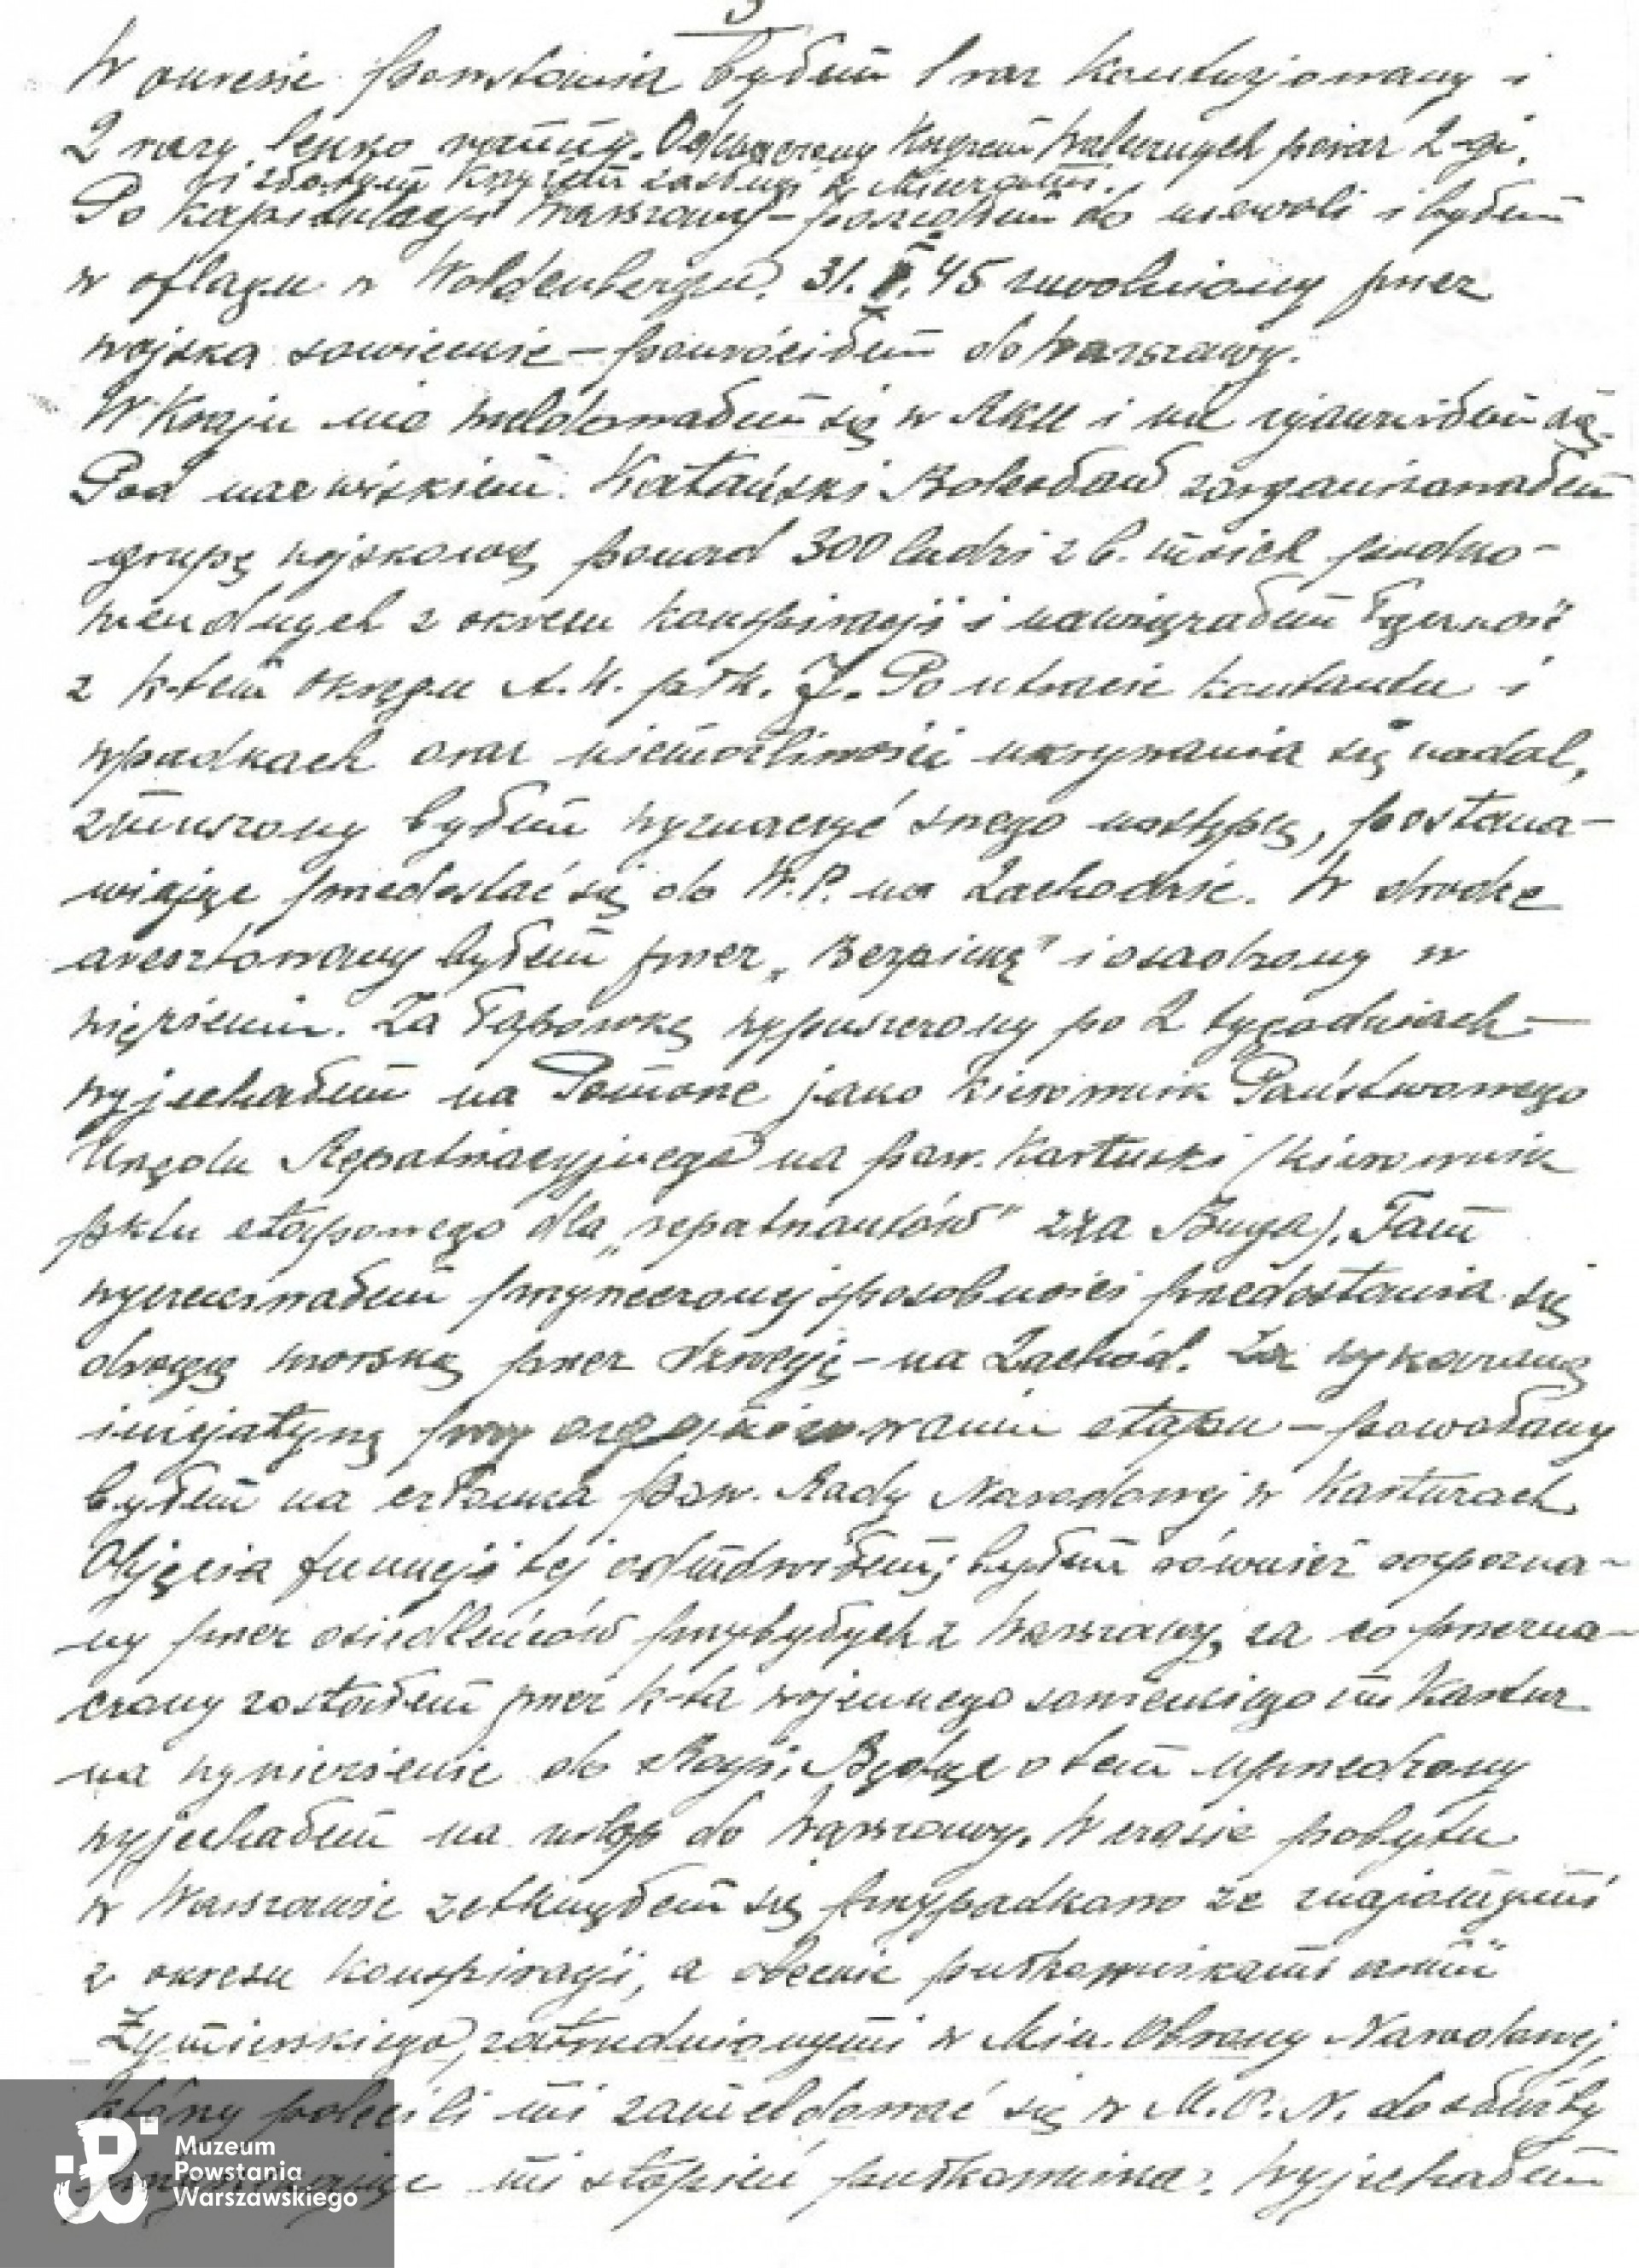 3
W okresie powstania byłem 1 raz kontuzjowany i
2 razy lekko ranny. Odznaczony Krzyżem Walecznych poraz 2-gi.
i złotym Krzyżem zasługi z Mieczami.
Po kapitulacji Warszawy – poszedłem do niewoli i byłem
w oflagu w Woldenbergu. 31. .45 zwolniony przez
wojska sowieckie – powróciłem do Warszawy.
W Kraju nie meldowałem się w RKU i nie ujawniłem się.
Pod nazwiskiem Bolesław zorganizowałem
grupę wojskową ponad 300 ludzi z b. moich podko-
mendnych z okresu konspiracji i nawiązałem łączność
z k-tem okręgu A.K. płk. J. Po utracie kontaktu i
wpadkach oraz niemożliwości ukrywania się nadal,
zmuszony byłem wyznaczyć swego następcę, postana-
wiając przedostać się do W.P. na Zachodzie. W drodze
aresztowany byłem przez „Bezpiekę" i osadzony w
więzieniu. Za łapówkę wypuszczony po 2 tygodniach –
wyjechałem na Pomorze jako kierownik Państwowego
Urzędu Repatriacyjnego na pow. Kartuski /kierownik
pktu etapowego dla „repatriantów" zza Buga/. Tam
wyczekiwałem przyrzeczonej sposobności przedostania się
drogą morską przez Szwecję – na Zachód. Za wykazaną
inicjatywę przy organizowaniu etapu – powołany
byłem na członka Pow. Rady Narodowej w Kartuzach.
Objęcia funkcji tej odmówiłem; byłem również rozpozna-
ny przez osiedleńców przybyłych z Warszawy, za co przezna-
czony zostałem przez k-ta wojennego sowieckiego m Kartuz
na wywiezienie do Rosji. Będąc o tem uprzedzony
wyjechałem na urlop do Warszawy. W czasie pobytu
w Warszawie zetknąłem się przypadkowo ze znajomymi
z okresu konspiracji, a obecnie pułkownikami armii
Żymierskiego, zatrudnionymi w Min. Obrony Narodowej,
którzy polecili mi zameldować się w M.O.N. do służby
mi stopień pułkownika. Wyjechałem
Muzeum
Powstania
Warszawskiego